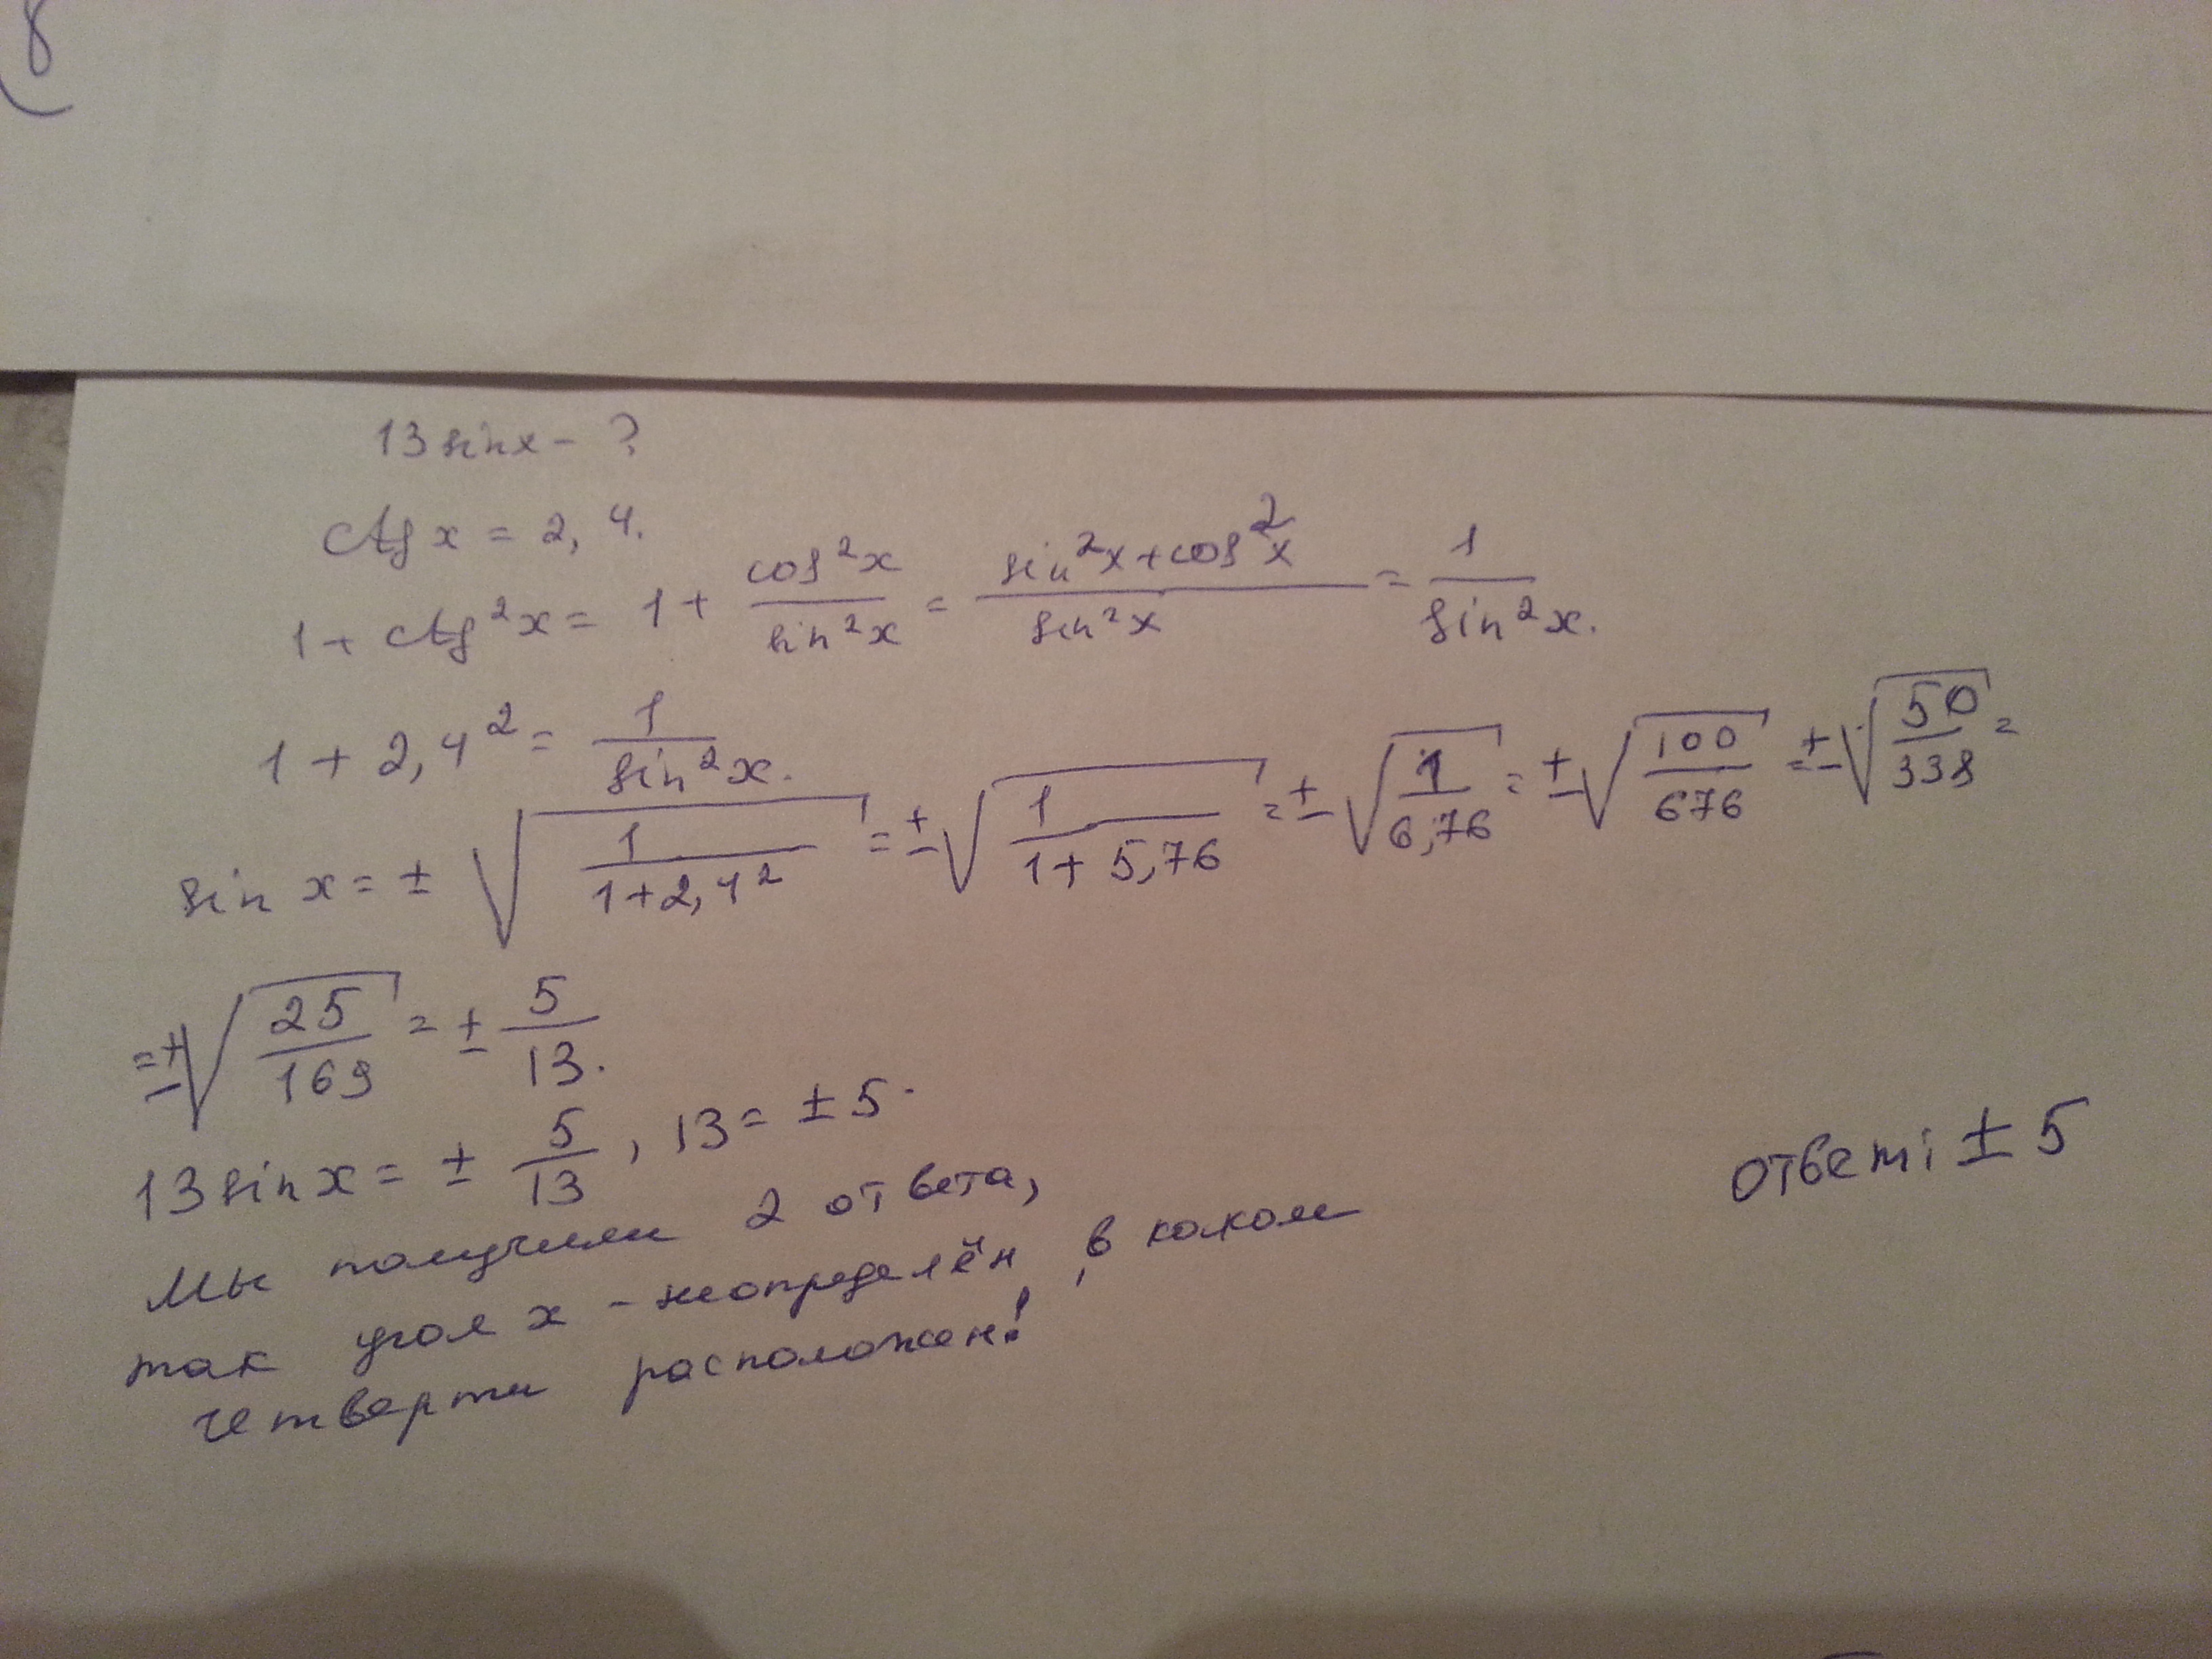 8
13 sin x - ?
ctg x = 2,4.
1 + ctg²x = 1 + cos²x / sin²x = sin²x + cos²x / sin²x = 1 / sin²x.
1 + 2,4² = 1 / sin²x.
sin x = ± √(1 / 1+2,4²) = ± √(1 / 1+5,76) = ± √(1 / 6,76) = ± √(100 / 676) = ± √(50 / 338) =
= ± √(25 / 169) = ± 5 / 13.
13 sin x = ± 5 / 13 , 13 = ± 5.
Мы получили 2 ответа,
так угол x - неопределён, в каком
четверти расположен!
ответ: ± 5